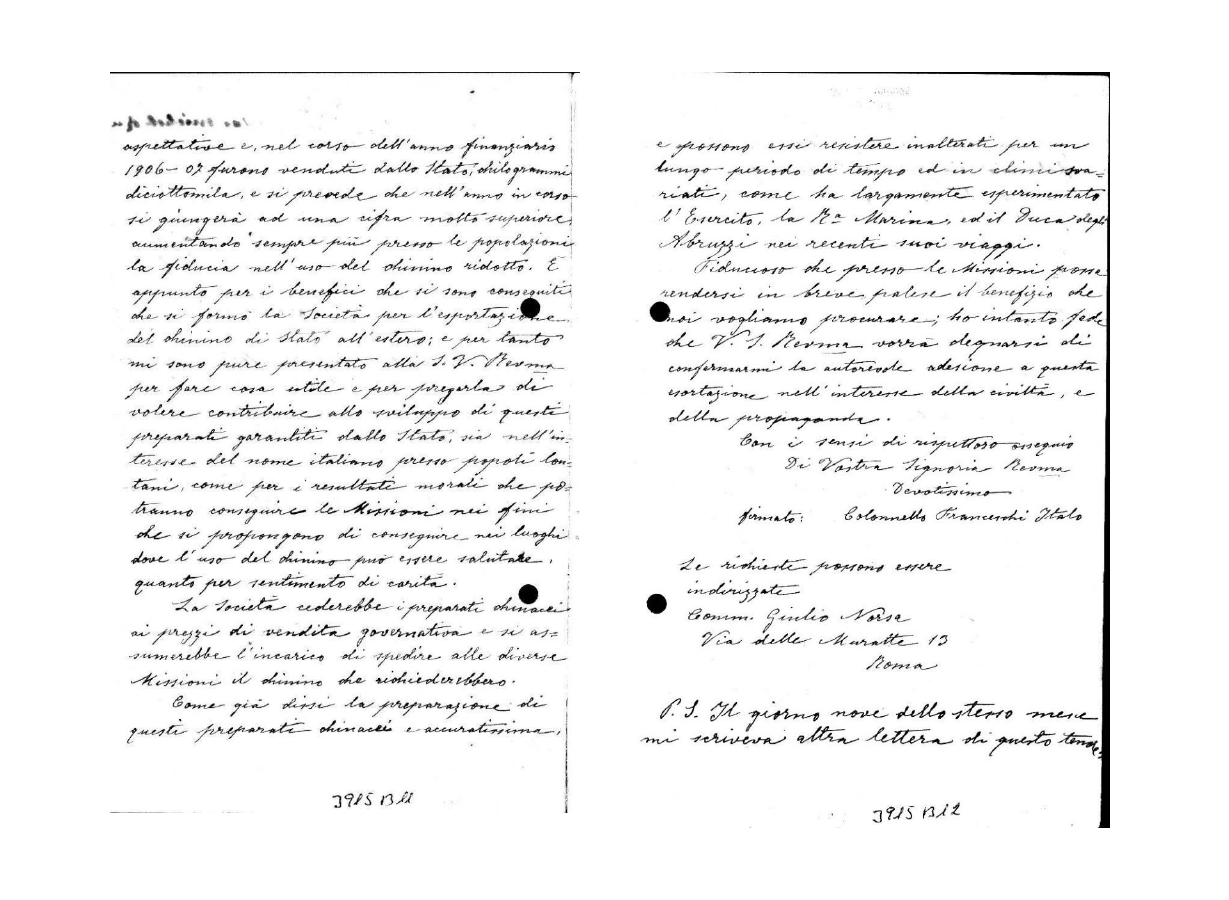 aspettative e, nel corso dell'anno finanziario
1906-07 furono venduti dallo Stato, chilogrammi
diciottomila, e si prevede che nell'anno in corso
si giungerà ad una cifra molto superiore,
aumentando sempre più presso le popolazioni
la fiducia nell'uso del chinino ridotto. E
appunto per i benefici che si sono conseguiti
che si formò la Società per l'esportazione
del chinino di Stato all'estero; e per tanto
mi sono pure presentato alla S. V. Revma
per fare cosa utile e per pregarla di
volere contribuire allo sviluppo di questi
preparati garantiti dallo Stato, sia nell'in-
teresse del nome italiano presso popoli lon-
tani, come per i resultati morali che po-
tranno conseguire le Missioni nei fini
che si propongono di conseguire nei luoghi
dove l'uso del chinino può essere salutare,
quanto per sentimento di carità.
La Società cederebbe i preparati chinacei
ai prezzi di vendita governativa e si as=
sumerebbe l'incarico di spedire alle diverse
Missioni il chinino che richiederebbero.
Come già dissi la preparazione di
questi preparati chinacei è accuratissima,
3915 B11
e possono essi resistere inalterati per un
lungo periodo di tempo ed in climi sva=
riati, come ha largamente esperimentato
l'Esercito, la Ra Marina, ed il Duca degli
Abruzzi nei recenti suoi viaggi.
Fiducioso che presso le Missioni possa
rendersi in breve palese il benefizio che
noi vogliamo procurare; ho intanto fede
che V. S. Revma vorrà degnarsi di
confermarmi la autorevole adesione a questa
esortazione nell'interesse della civiltà, e
della propaganda.
Con i sensi di rispettoso ossequio
Di Vostra Signoria Revma
Devotissimo
firmato: Colonnello Franceschi Italo
Le richieste possono essere
indirizzate
Comm. Giulio Norsa
Via delle Muratte 13
Roma
P. S. Il giorno nove dello stesso mese
mi scriveva altra lettera di questo
3915 B12